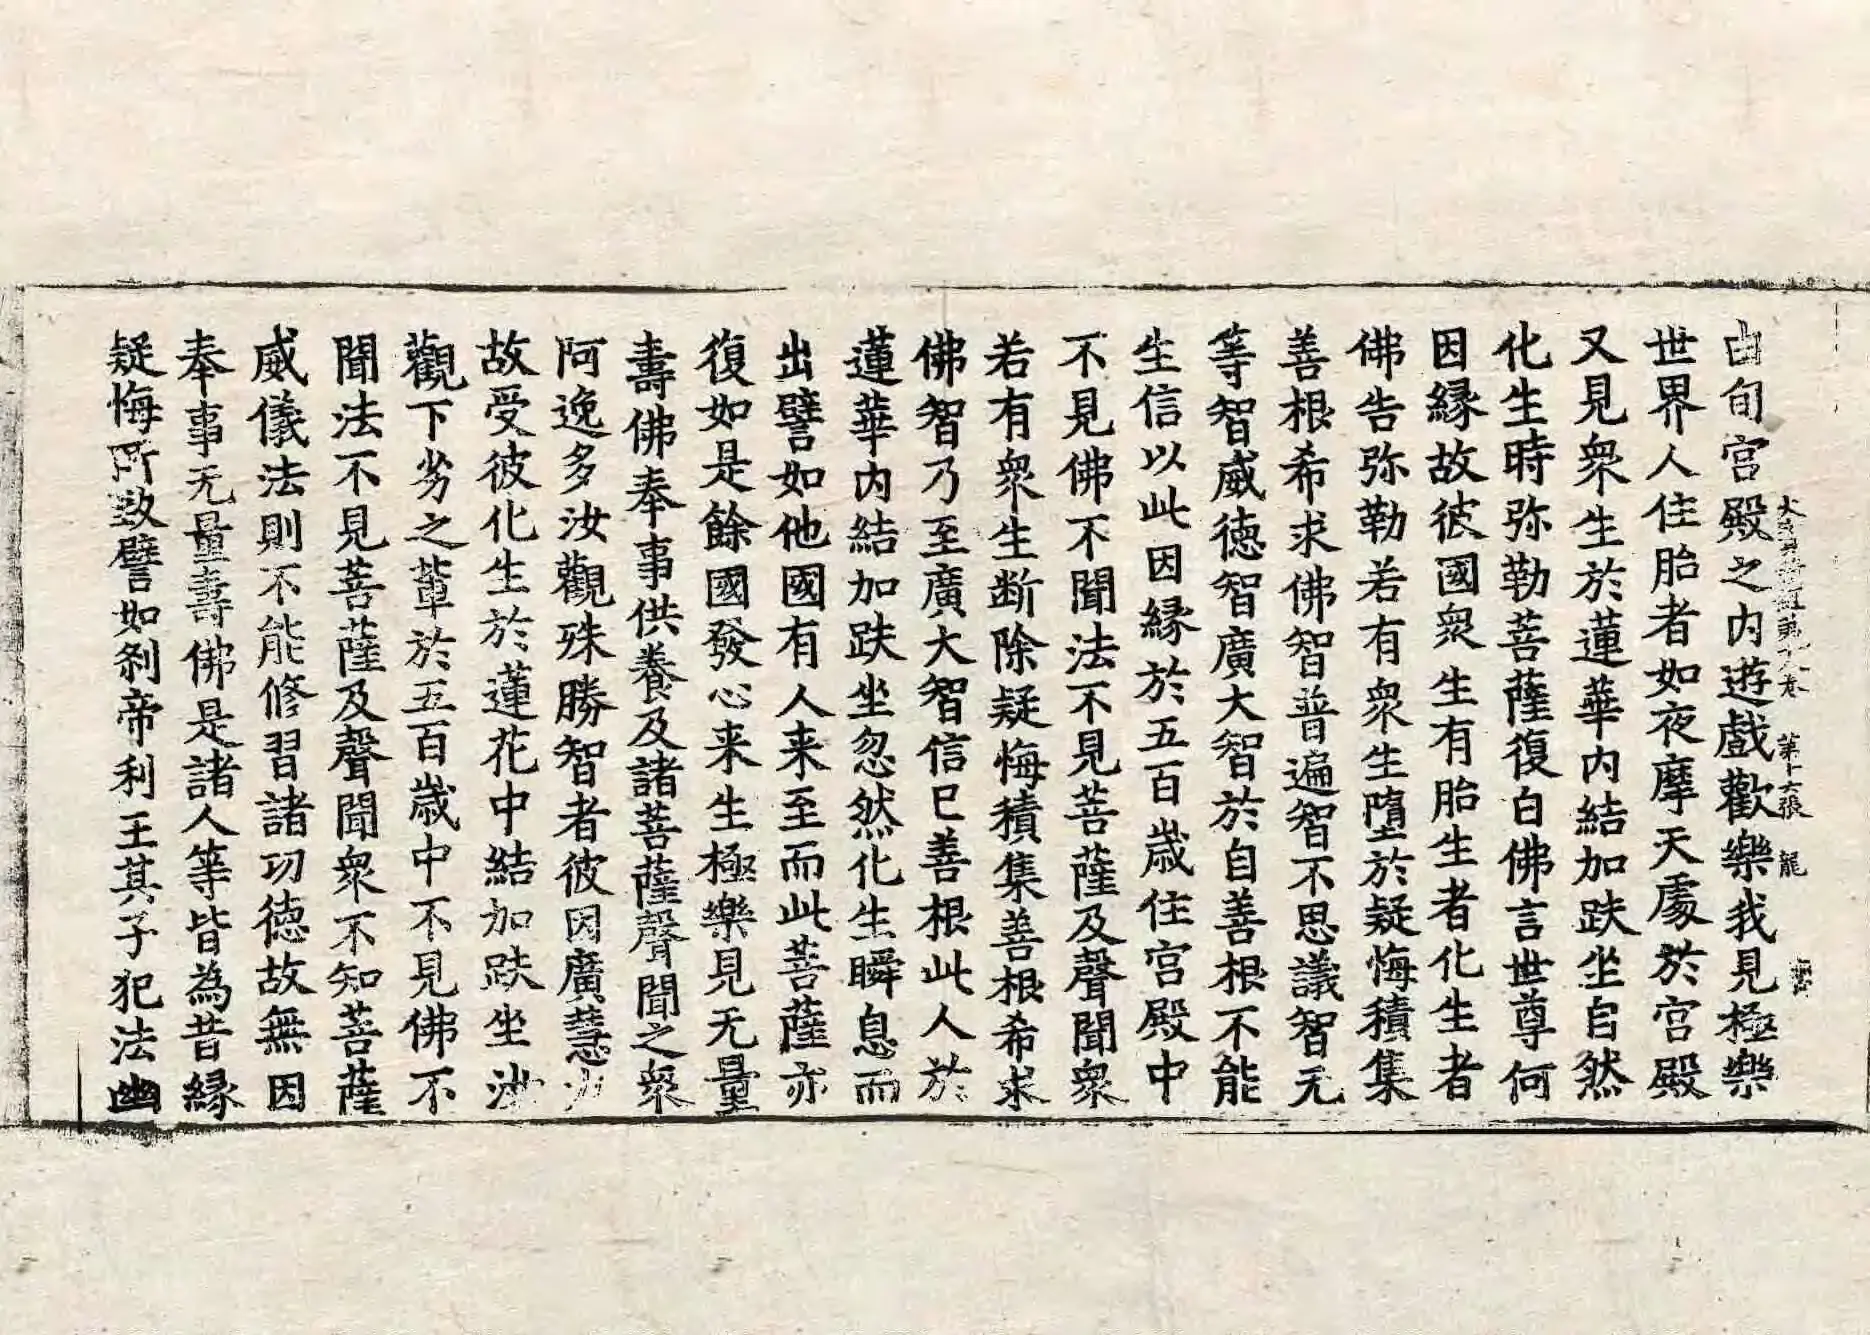 由旬宫殿之内遊戲歡樂我見極樂
世界人住胎者如夜摩天處於宫殿
又見衆生於蓮華内結加趺坐自然
化生時弥勒菩薩復白佛言世尊何
因縁故彼國衆生有胎生者化生者
佛告弥勒若有衆生墮於疑悔積集
善根希求佛智普遍智不思議智无
等智威德智廣大智於自善根不能
生信以此因縁於五百歲住宫殿中
不見佛不聞法不見菩薩及聲聞衆
若有衆生断除疑悔積集善根希求
佛智乃至廣大智信已善根此人於
蓮華内結加趺坐忽然化生瞬息而
出譬如他國有人来至而此菩薩亦
復如是餘國發心来生極樂見无量
壽佛奉事供養及諸菩薩聲聞之衆
阿逸多汝觀殊勝智者彼因廣慧力
故受彼化生於蓮花中結加趺坐汝
觀下劣之輩於五百歲中不見佛不
聞法不見菩薩及聲聞衆不知菩薩
威儀法則不能修習諸功德故無因
奉事无量壽佛是諸人等皆為昔縁
疑悔所致譬如刹帝利王其子犯法幽
第十六張 龍